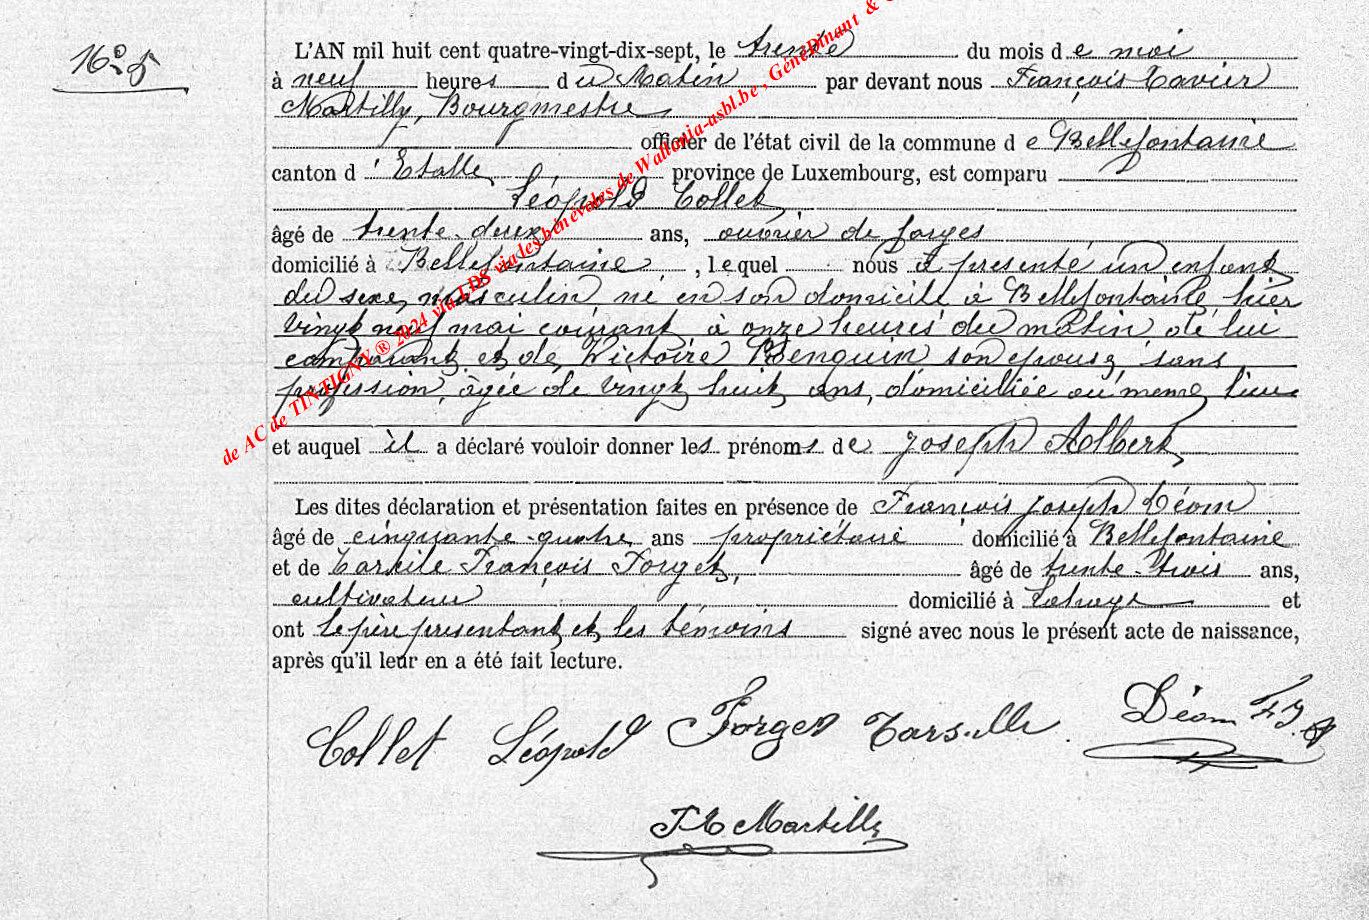 N° 5
L'AN mil huit cent quatre-vingt-dix-sept, le trente du mois de mai
à neuf heures du Matin par devant nous François Xavier
Martilly, Bourgmestre
officier de l'état civil de la commune de Bellefontaine
canton d'Etalle province de Luxembourg, est comparu
Léopold Collet
âgé de trente-deux ans, ouvrier de forges
domicilié à Bellefontaine, lequel nous a présenté un enfant
du sexe masculin né en son domicile à Bellefontaine, hier
vingt neuf mai courant à onze heures du matin de lui
comparant et de Victoire Benguin son épouse, sans
profession, âgée de vingt huit ans, domiciliée au même lieu
et auquel il a déclaré vouloir donner les prénoms de Joseph Albert
Les dites déclaration et présentation faites en présence de François Joseph Déom
âgé de cinquante-quatre ans propriétaire domicilié à Bellefontaine
et de Tarsile François Forget, âgé de trente-trois ans,
cultivateur domicilié à Lahage et
ont le père présentant et les témoins signé avec nous le présent acte de naissance,
après qu'il leur en a été fait lecture.
Collet Léopold Forget Tarsille Déom F J.
F X Martilly
de AC de TINTIGNY ® 2024 via LDS via les bénévoles de Wallonia-asbl.be, GénéDinant &